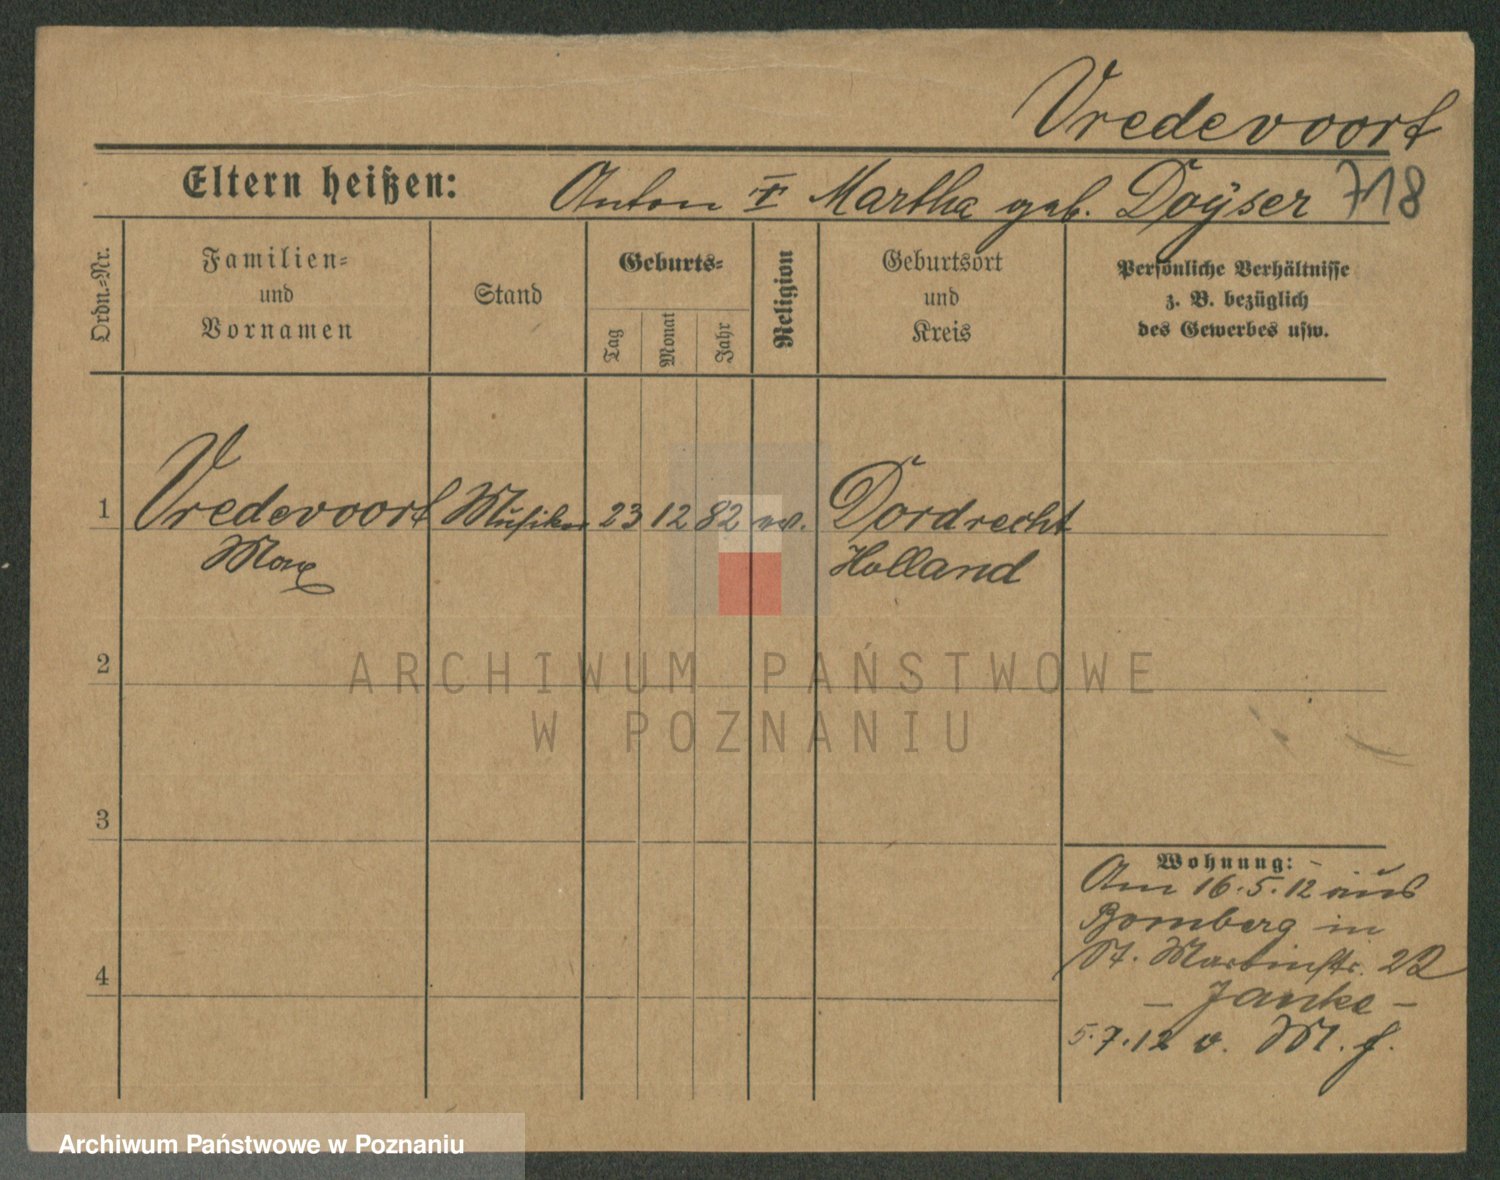 Vredevoort
Eltern heißen: Anton Martha geb. Doÿser 718
Ordn.-Nr.
Familien-
und
Vornamen
Stand
Geburts-
Tag
Monat
Jahr
Religion
Geburtsort
und
Kreis
Persönliche Verhältnisse
z. B. bezüglich
des Gewerbes usw.
1 Vredevoort Musiker 23 12 82 ev. Dordrecht
Max Holland
2
3
4
Wohnung:
Am 16.5.12 aus
Bomberg in
St. Martinstr. 22
- Janke -
5.7.12 v.
ARCHIWUM PAŃSTWOWE
W POZNANIU
Archiwum Państwowe w Poznaniu